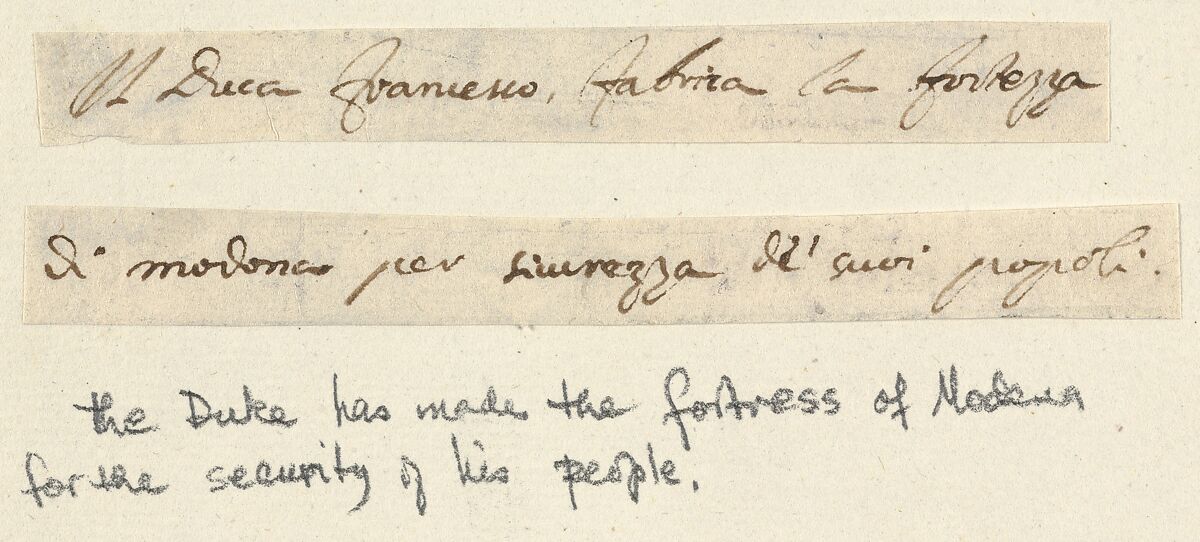 Il Duca Francesco, fabrica la fortezza
di modona per sicurezza de' suoi popoli.
the Duke has made the fortress of Modena
for the security of his people.